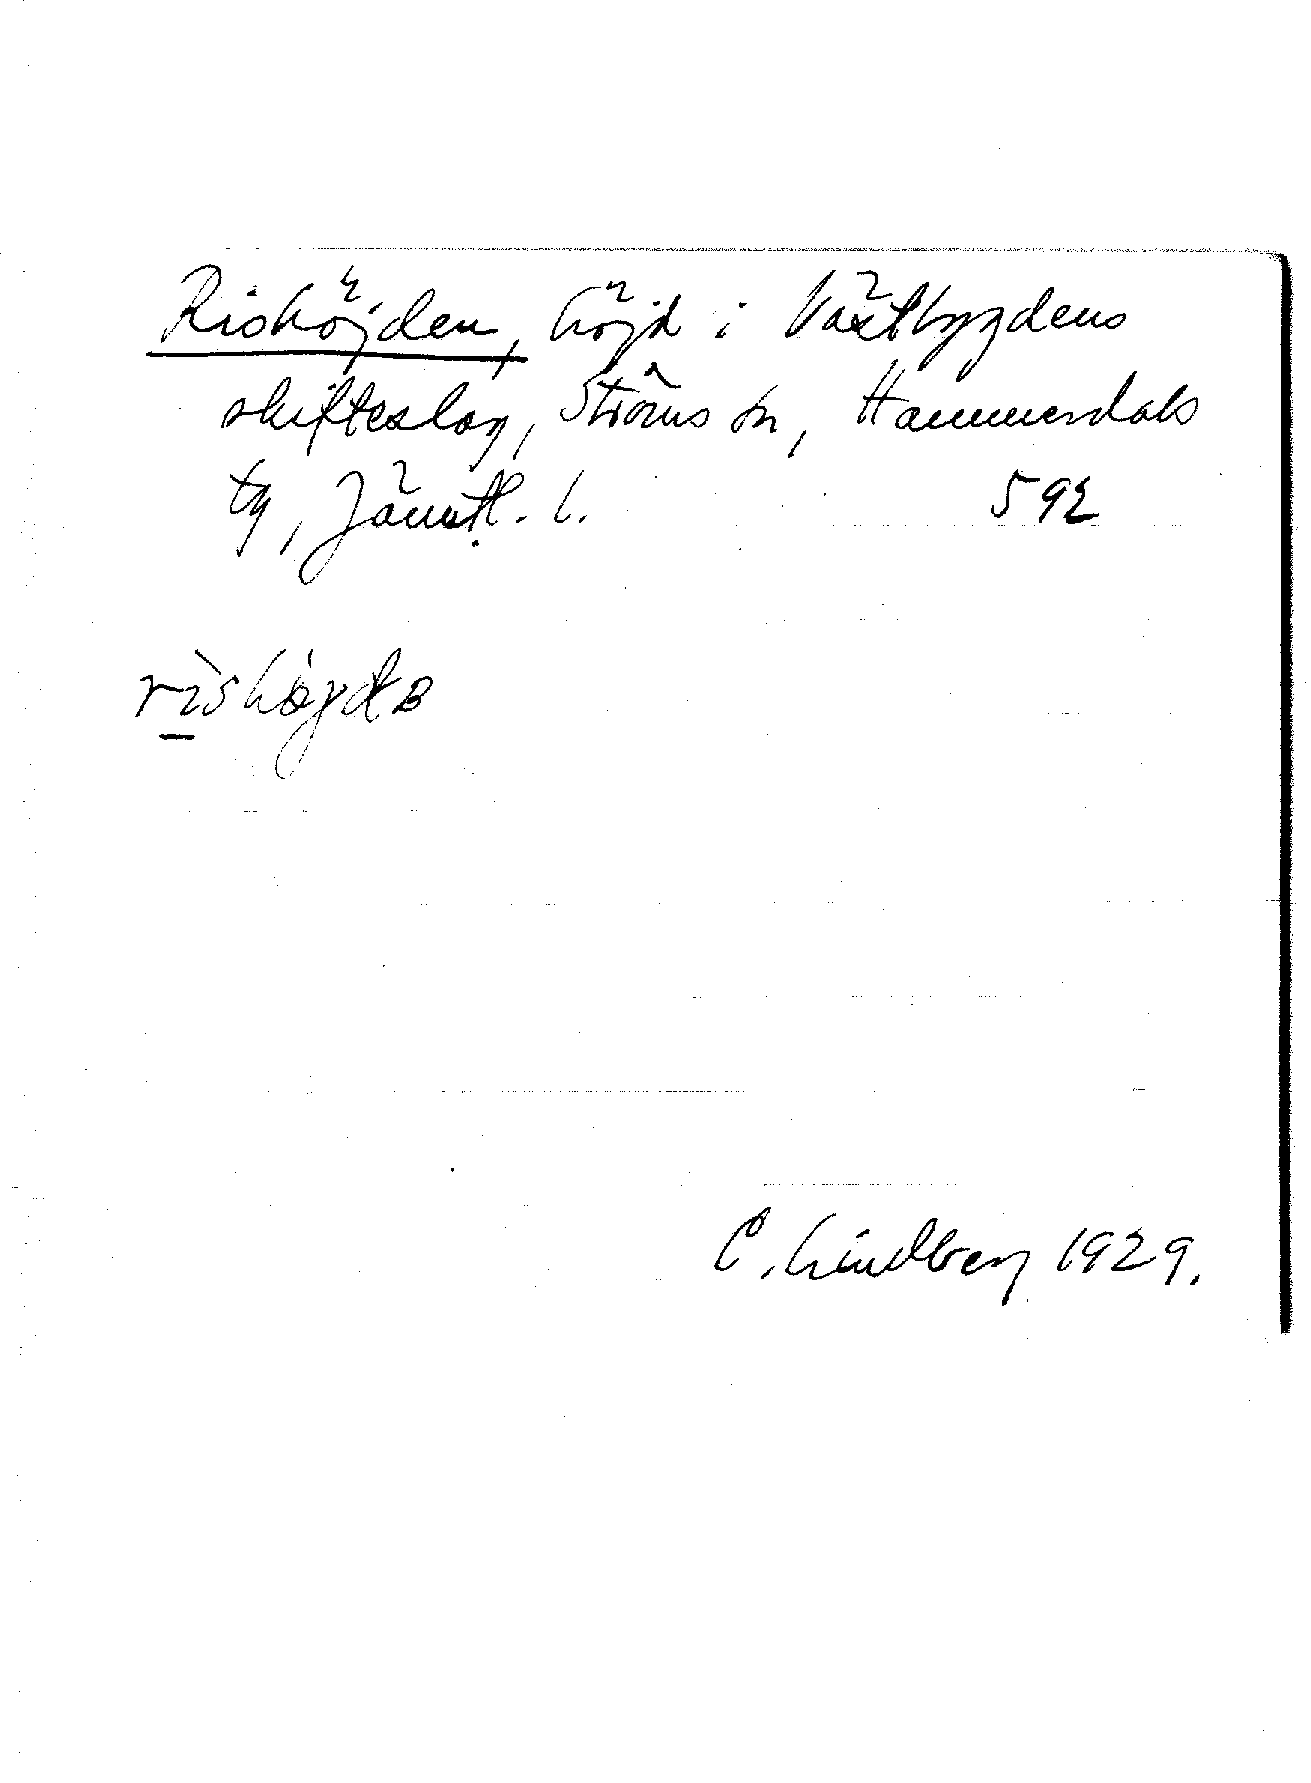 Rishöjden, höjd i Västbygdens
skifteslag, Ströms sn, Hammerdals
tg, Jämtl. l. 592
rìshøgdɐ
C. Lindberg 1929.